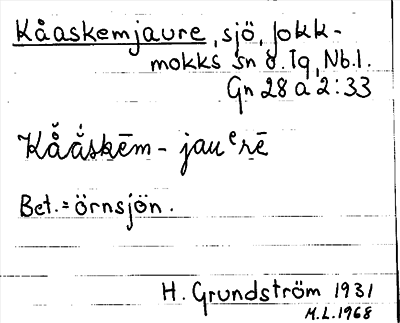 Kåaskemjaure, sjö, Jokk-
mokks sn o. Tg, Nb.l.
Gn 28 a 2:33
Kå̆ǻskēm - jauᵉrē
Bet. = örnsjön.
H. Grundström 1931
M.L. 1968